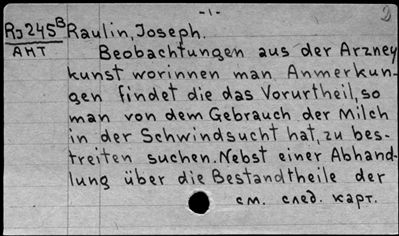 -1-
RJ245B Raulin, Joseph.
АНТ
Beobachtungen aus der Arzney
kunst worinnen man Anmerkun-
gen findet die das Vorurtheil, so
man von dem Gebrauch der Milch
in der Schwindsucht hat, zu bes-
treiten suchen. Nebst einer Abhand-
lung über die Bestandtheile der
см. след. карт.